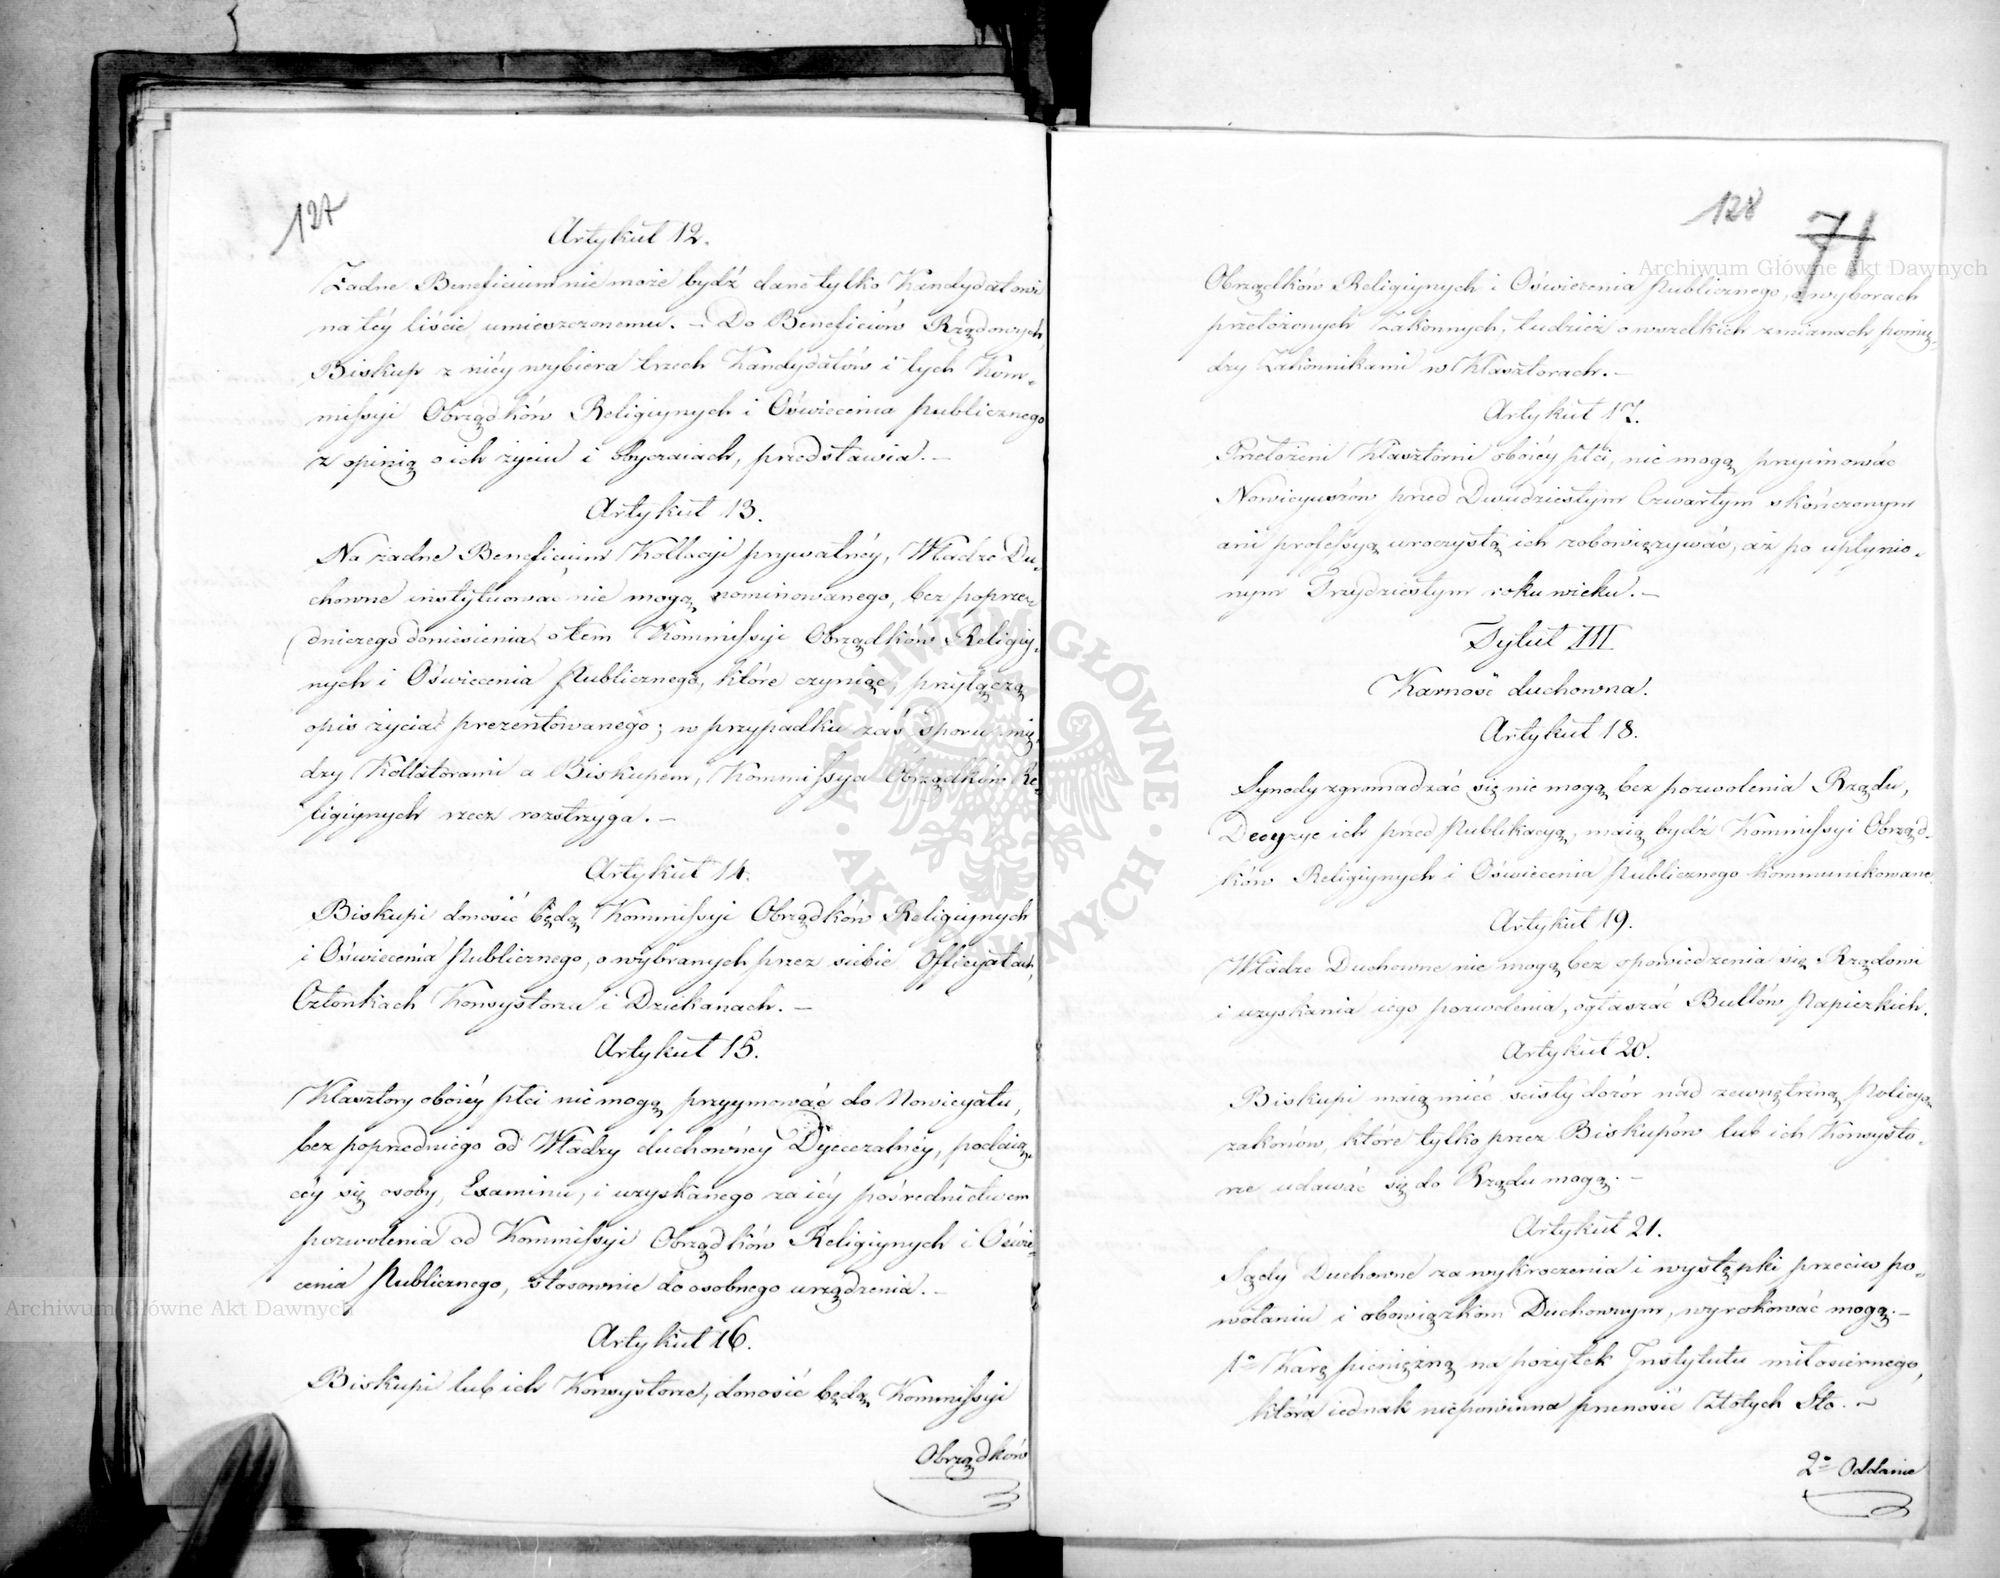 127
Artykuł 12.
Żadne Beneficium nie może bydź dane tylko Kandydatowi
na téy liście umieszczonemu. — Do Beneficiów Rządowych
Biskup z niéy wybiera trzech Kandydatów i tych Kom-
missyi Obrządków Religiynych i Oświecenia Publicznego
z opinią o ich życiu i obyczaiach, przedstawia. —
Artykuł 13.
Na żadne Beneficium Kollacyi prywatnéy, Władze Du-
chowne instytuować nie mogą nominowanego, bez poprze-
dniczego doniesienia o tem Kommissyi Obrządków Religiy-
nych i Oświecenia Publicznego, które czyniąc, przyłączą
opis życia prezentowanego; w przypadku zaś sporu mię-
dzy Kollatorami a Biskupem, Kommissya Obrządków Re-
ligiynych rzecz rozstrzyga. —
Artykuł 14.
Biskupi donosić będą Kommissyi Obrządków Religiynych
i Oświecenia Publicznego, o wybranych przez siebie Officyałach,
Członkach Konsystorza i Dziekanach. —
Artykuł 15.
Klasztory obóiéy płci nie mogą przyymować do Nowicyatu,
bez poprzedniego od Władzy duchownéy Dyecezalnéy, podaią-
céy się osoby, Examinu, i uzyskanego za iéy pośrednictwem
pozwolenia od Kommissyi Obrządków Religiynych i Oświe-
cenia Publicznego, stosownie do osobnego urządzenia. —
Artykuł 16.
Biskupi lub ich Konsystorze, donosić będą Kommissyi
Obrządków
128
71
Obrządków Religiynych i Oświecenia Publicznego, o wyborach
przełożonych Zakonnych, tudzież o wszelkich zmianach pomię-
dzy Zakonnikami w Klasztorach. —
Artykuł 17.
Przełożeni Klasztorni obóiey płci, nie mogą przyimować
Nowicyuszów przed Dwudziestym Czwartym skończonym
ani professyą uroczystą ich zobowiązywać, aż po upłynio-
nym Trzydziestym roku wieku. —
Tytuł III
Karność duchowna.
Artykuł 18.
Synody zgromadzać się nie mogą bez pozwolenia Rządu,
Decyzye ich przed Publikacyą, maią bydź Kommissyi Obrząd-
ków Religiynych i Oświecenia Publicznego kommunikowane.
Artykuł 19.
Władze Duchowne nie mogą bez opowiedzenia się Rządowi
i uzyskania iego pozwolenia, ogłaszać Bullów Papiezkich.
Artykuł 20.
Biskupi maią mieć ścisły dozór nad zewnętrzną Policyą
zakonów, które tylko przez Biskupów lub ich Konsysto-
rze udawać się do Rządu mogą. —
Artykuł 21.
Sądy Duchowne za wykroczenia i występki przeciw po-
wołaniu i obowiązkom Duchownym, wyrokować mogą. —
1º Karę pieniężną na pożytek Instytutu miłosiernego,
która iednak nie powinna przenosić Złotych Sto. —
2º Oddanie
Archiwum Główne Akt Dawnych
Archiwum Główne Akt Dawnych
ARCHIWUM GŁÓWNE AKT DAWNYCH